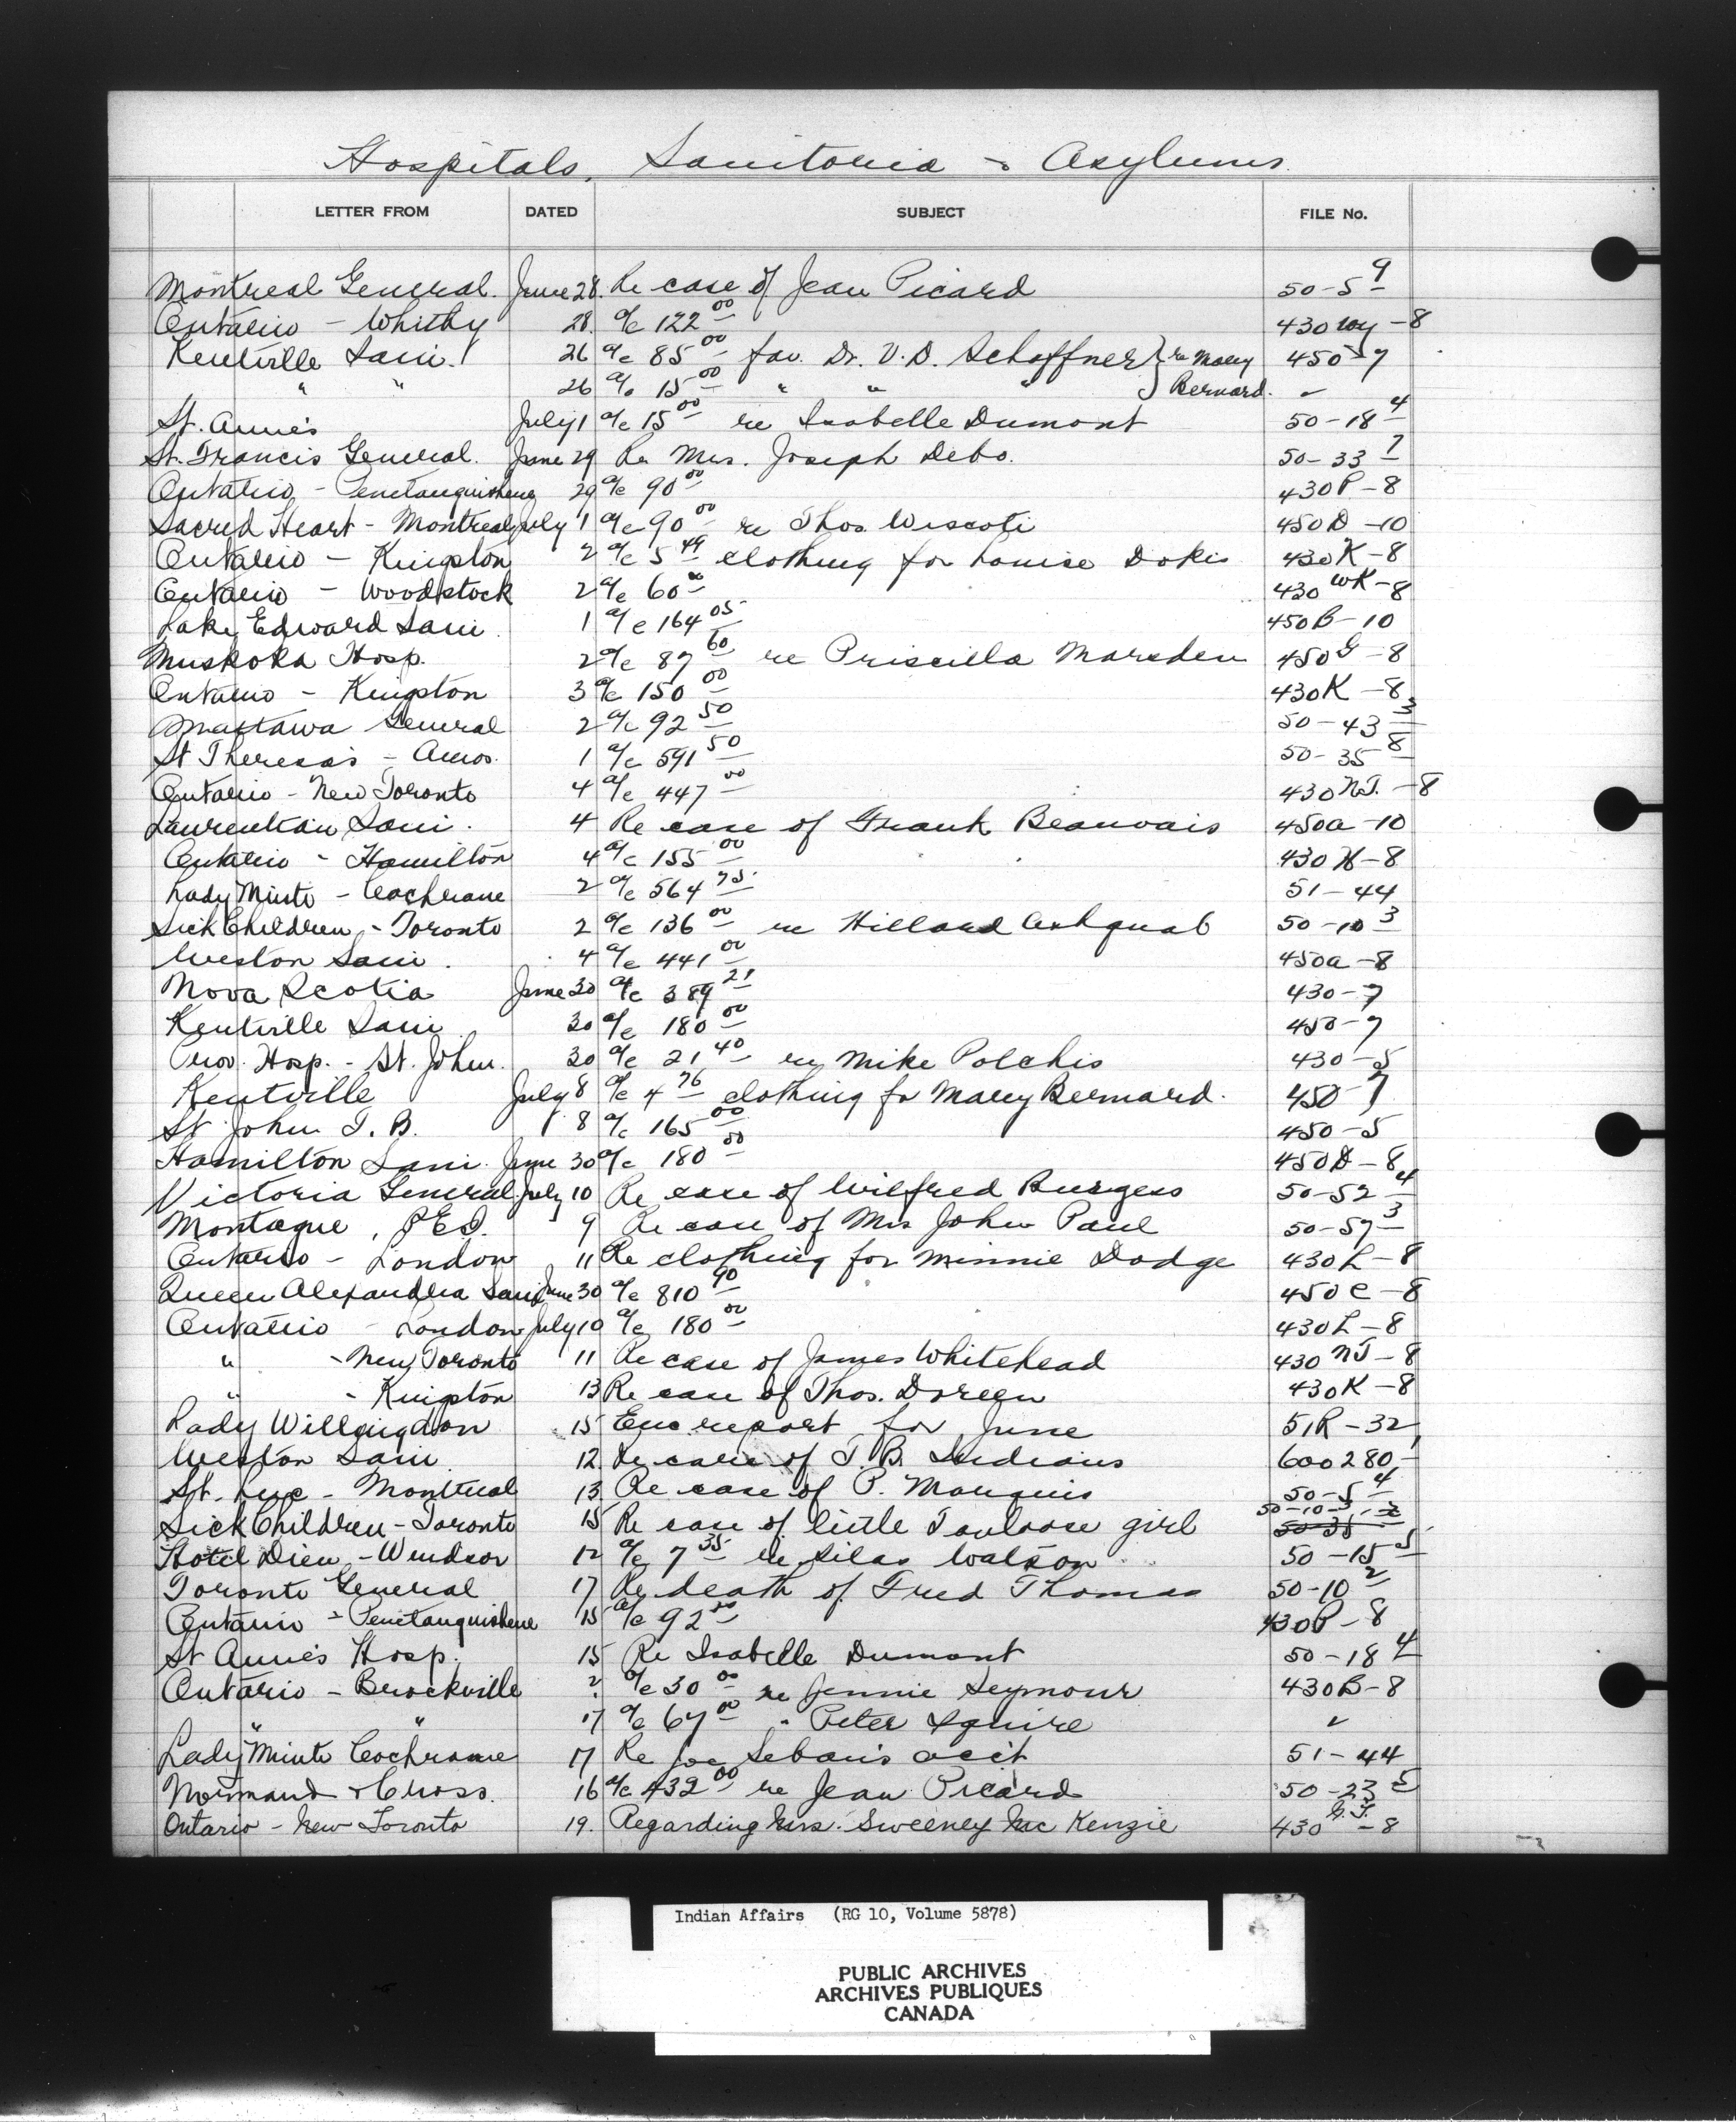 Hospitals, Sanitoria & Asylums
LETTER FROM DATED SUBJECT FILE No.
Montreal General. June 28. Re case of Jean Picard 50-5 9
Ontario - Whitby 28. a/c 122 00 430 Wy -8
Kentville Sani. 26 a/c 85 00 fav. Dr. V.D. Schaffner } re Mary 450-7
" " 26 a/c 15 00 " " " } Bernard. "
St. Anne's July 1 a/c 15 00 re Isabelle Dumont 50-18 4
St. Francis General. June 29 Re Mrs. Joseph Debo. 50-33 7
Ontario - Penetanguishene 29 a/c 90 00 430P-8
Sacred Heart - Montreal July 1 a/c 90 00 re Thos. Wiscoti 450D-10
Ontario - Kingston 2 a/c 5 49 clothing for Louise Dokis 430K-8
Ontario - Woodstock 2 a/c 60 00 430 WK-8
Lake Edward Sani. 1 a/c 164 05 450B-10
Muskoka Hosp. 2 a/c 87 60 re Priscilla Marsden 450G-8
Ontario - Kingston 3 a/c 150 00 430K-8
Mattawa General 2 a/c 92 50 50-43 3
St Theresa's - Amos. 1 a/c 591 50 50-35 8
Ontario - New Toronto 4 a/c 447 00 430 N.T. -8
Laurentian Sani. 4 Re case of Frank Beauvais 450a-10
Ontario - Hamilton 4 a/c 155 00 430H-8
Lady Minto - Cochrane 2 a/c 564 75 51-44
Sick Children - Toronto 2 a/c 136 00 re Hillard Ashquab 50-10 3
Weston Sani. 4 a/c 441 00 450a-8
Nova Scotia June 30 a/c 389 21 430-7
Kentville Sani 30 a/c 180 00 450-7
Prov. Hosp. - St. John. 30 a/c 21 40 re Mike Polchis 430-5
Kentville July 8 a/c 4 76 clothing for Mary Bernard. 450-7
St John T.B. 8 a/c 165 00 450-5
Hamilton Sani. June 30 a/c 180 00 450D-8
Victoria General. July 10 Re case of Wilfred Burgess 50-52 4
Montague, P.E.I. 9 Re case of Mrs John Paul 50-57 3
Ontario - London 11 Re clothing for Minnie Dodge 430L-8
Queen Alexandra Sani June 30 a/c 810 90 450C-8
Ontario - London July 10 a/c 180 00 430L-8
" - New Toronto 11 Re case of James Whitehead 430 NT-8
" - Kingston 13 Re case of Thos. Doreen 430K-8
Lady Willingdon 15 Enc report for June 51R-32
Weston Sani. 12 Re care of T.B. Indians 600280
St. Luc - Montreal 13 Re case of P. Marquis 50-5 4
Sick Children - Toronto 15 Re case of little Toulouse girl 50-10-3
Hotel Dieu - Windsor 12 a/c 7 35 re Silas Watson 50-15 5
Toronto General 17 Re death of Fred Thomas 50-10 2
Ontario - Penetanguishene 15 a/c 92 00 430P-8
St Anne's Hosp. 15 Re Isabelle Dumont 50-18 4
Ontario - Brockville ? a/c 30 00 re Jennie Seymour 430B-8
" " 17 a/c 67 00 " Peter Squire "
Lady Minto Cochrane 17 Re Joe acc't 51-44
Normand & Cross. 16 a/c 432 00 re Jean Picard 50-23 5
Ontario - New Toronto 19. Regarding Mrs. Sweeney Mc Kenzie 430 N.T. -8
Indian Affairs (RG 10, Volume 5878)
PUBLIC ARCHIVES
ARCHIVES PUBLIQUES
CANADA